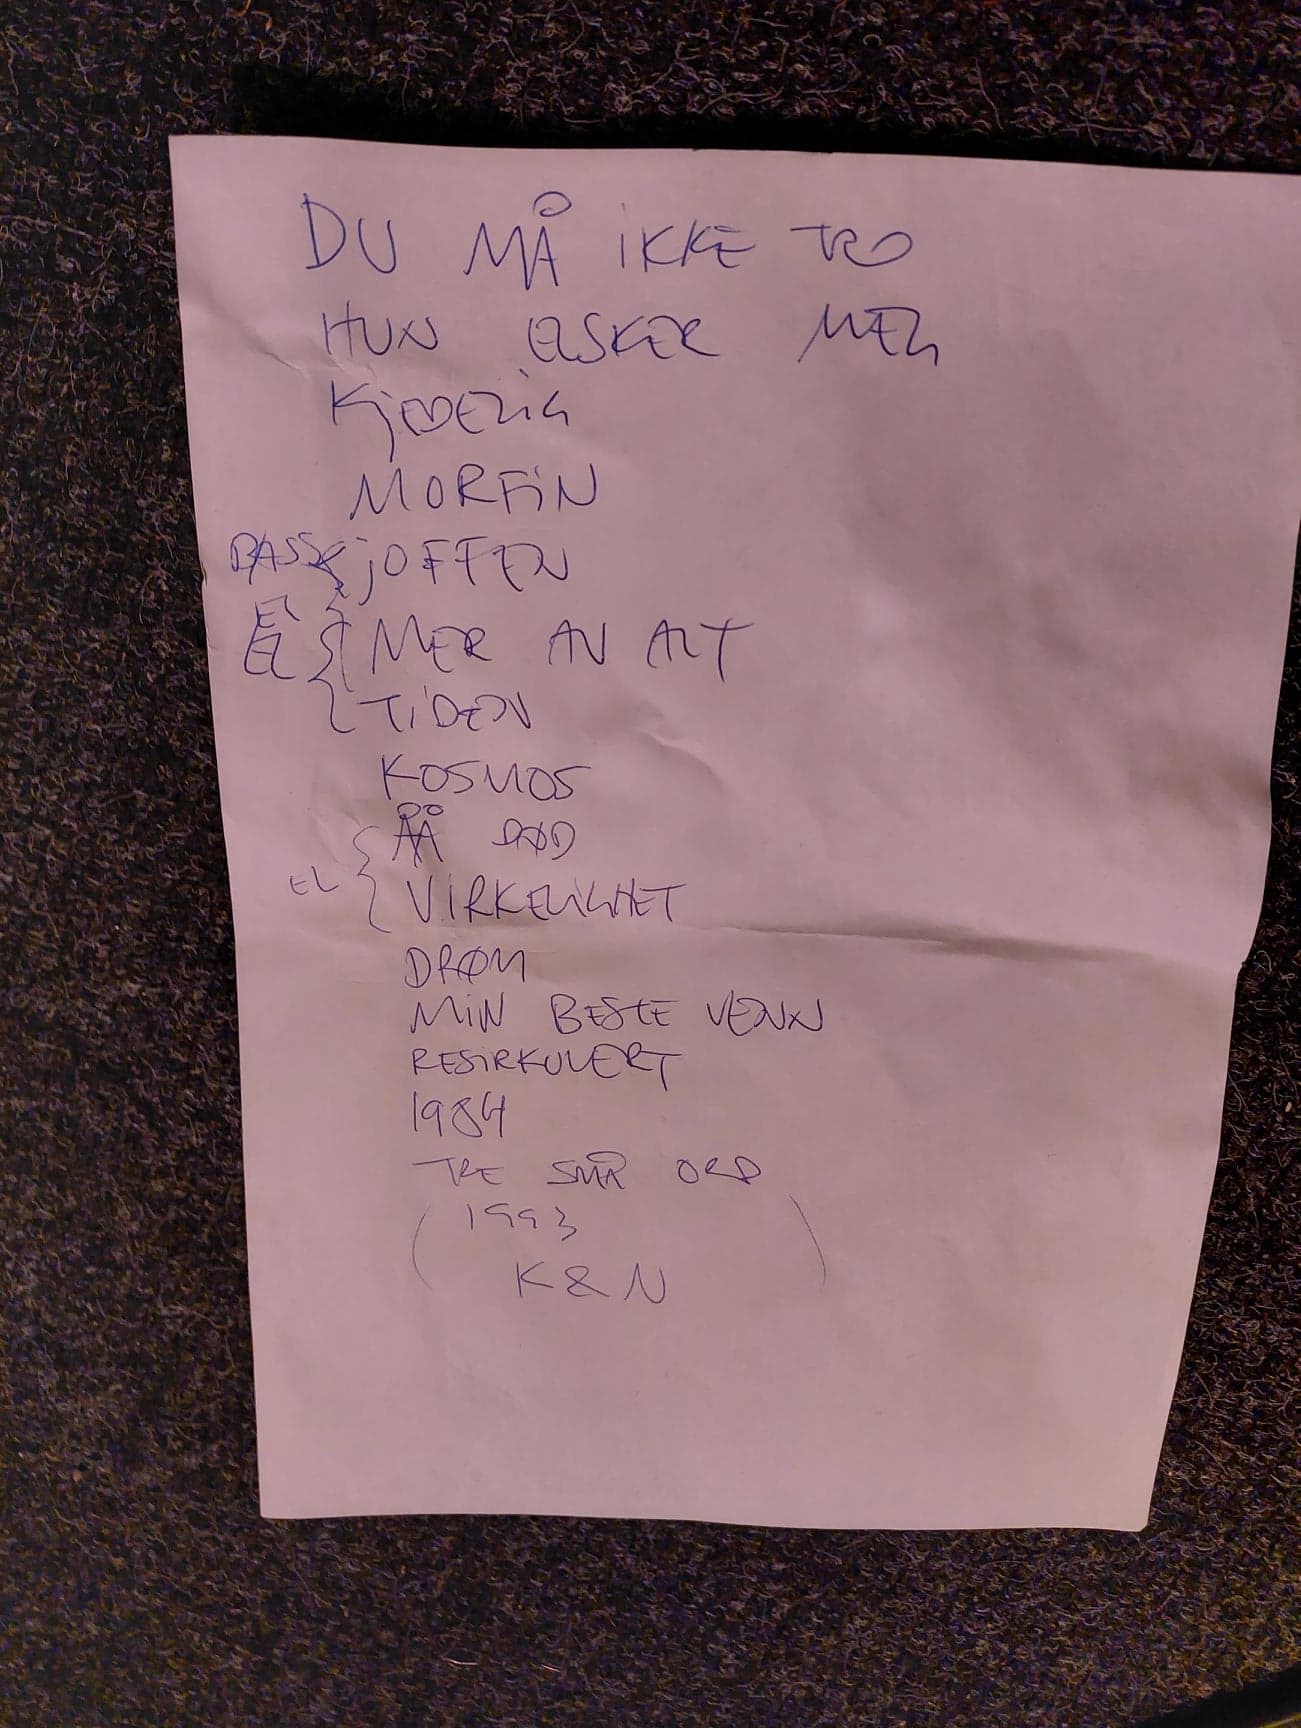 DU MÅ IKKE TRO
HUN ELSKER MEG
KJEDELIG
MORFIN
BASS JOFFEN
EL
EL MER AV ALT
TIDEN
KOSMOS
ÅÅ DØD
EL VIRKELIGHET
DRØM
MIN BESTE VENN
RESIRKULERT
1984
TRE SMÅ ORD
( 1993
K & N )